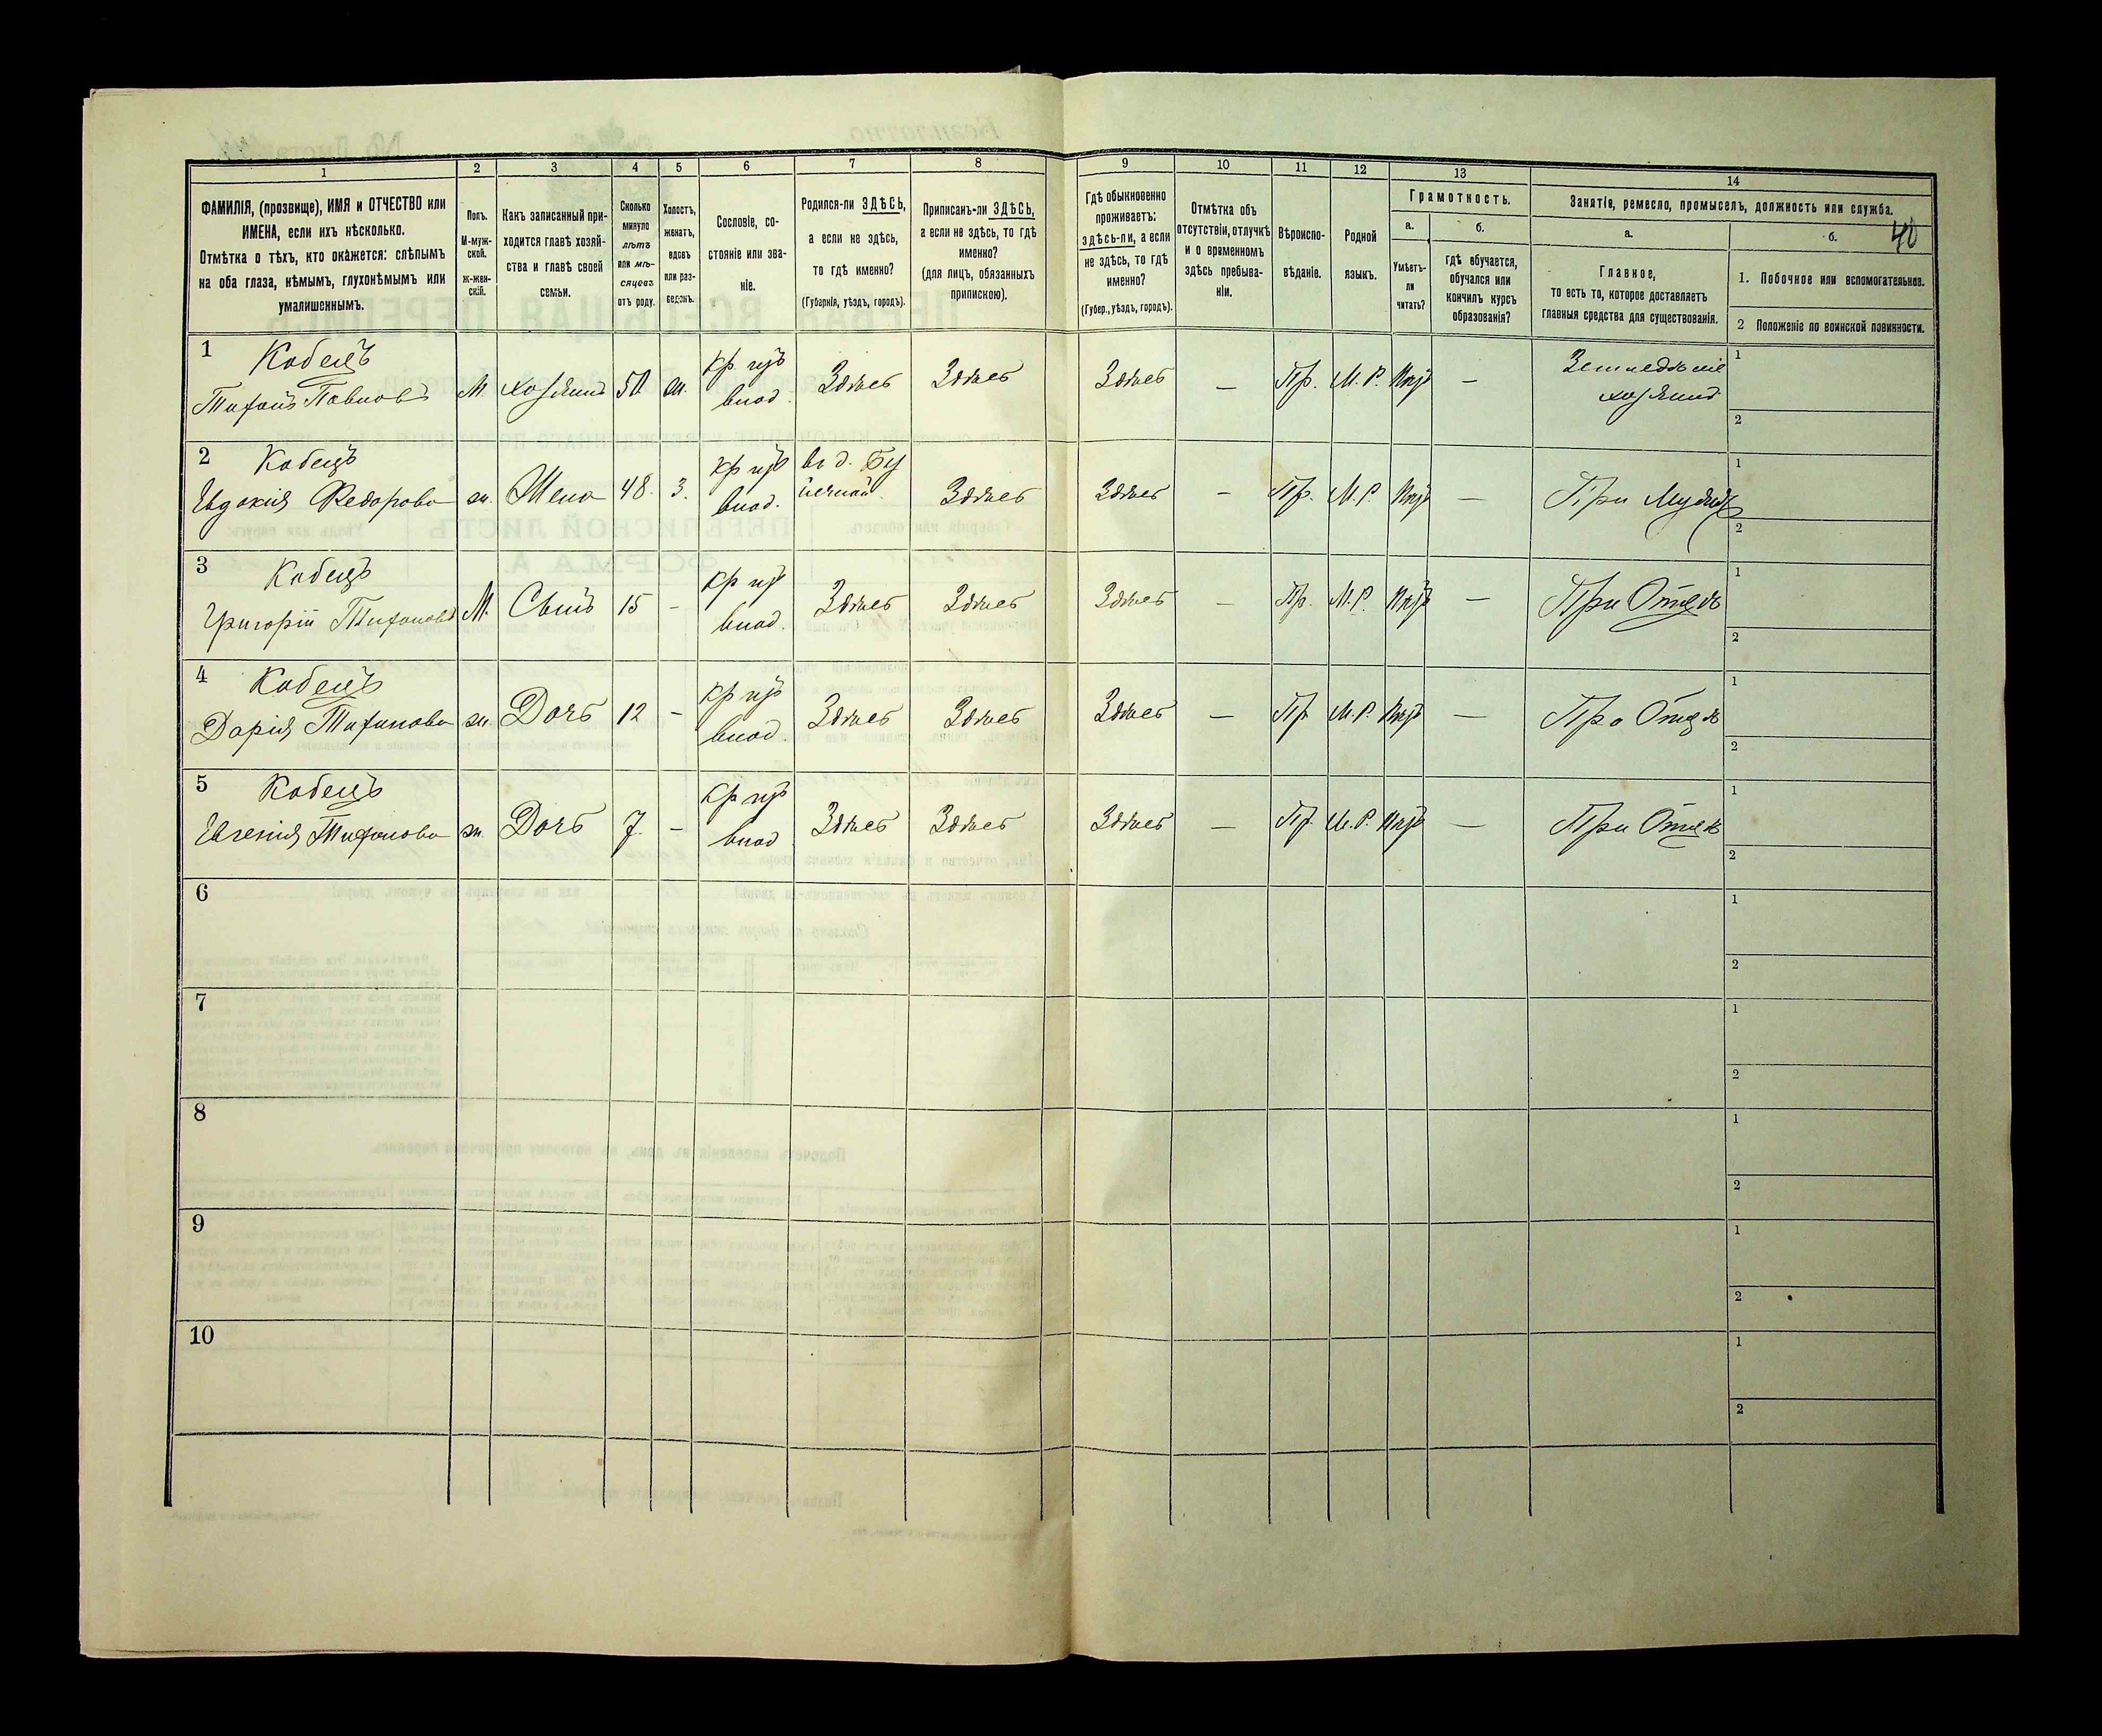 40
1 2 3 4 5 6 7 8 9 10 11 12 13 14
ФАМИЛІЯ, (прозвище), ИМЯ и ОТЧЕСТВО или
ИМЕНА, если ихъ нѣсколько.
Отмѣтка о тѣхъ, кто окажется: слѣпымъ
на оба глаза, нѣмымъ, глухонѣмымъ или
умалишеннымъ.
Полъ.
М-муж-
ской.
ж-жен-
скій.
Какъ записанный при-
ходится главѣ хозяй-
ства и главѣ своей
семьи.
Сколько
минуло
лѣтъ
или мѣ-
сяцевъ
отъ роду.
Холостъ,
женатъ,
вдовъ
или раз-
веденъ.
Сословіе, со-
стояніе или зва-
ніе.
Родился-ли ЗДѢСЬ,
а если не здѣсь,
то гдѣ именно?
(Губернія, уѣздъ, городъ).
Приписанъ-ли ЗДѢСЬ,
а если не здѣсь, то гдѣ
именно?
(для лицъ, обязанныхъ
припискою).
Гдѣ обыкновенно
проживаетъ:
здѣсь-ли, а если
не здѣсь, то гдѣ
именно?
(Губер., уѣздъ, городъ).
Отмѣтка объ
отсутствіи, отлучкѣ
и о временномъ
здѣсь пребыва-
ніи.
Вѣроиспо-
вѣданіе.
Родной
языкъ.
Грамотность.
а.
Умѣетъ-
ли
читать?
б.
гдѣ обучается,
обучался или
кончилъ курсъ
образованія?
Занятіе, ремесло, промыселъ, должность или служба.
а.
Главное,
то есть то, которое доставляетъ
главныя средства для существованія.
б.
1. Побочное или вспомогательное.
2 Положеніе по воинской повинности.
1 Кобецъ кр изъ Земледѣліе 1
Тифонъ Павловъ М. хозяинъ 50 ж. влад. Здѣсь Здѣсь Здѣсь — Пр. М. Р. — хозяинъ
2
2 Кобецъ кр изъ въ д. 1
Евдокія Федорова ж. Жена 48. 3. влад. Здѣсь Здѣсь — Пр. М. Р. — При Мужѣ
2
3 Кобецъ кр из 1
Григорій Тифоновъ М. Сынъ 15 — влад. Здѣсь Здѣсь Здѣсь — Пр. М. Р. — При Отцѣ
2
4 Кобецъ кр изъ 1
Дарія Тифонова ж. Дочь 12 — влад. Здѣсь Здѣсь Здѣсь — Пр М. Р. — При Отцѣ
2
5 Кобецъ кр изъ 1
Евгенія Тифонова ж. Дочь 7. — влад Здѣсь Здѣсь Здѣсь — Пр. М. Р. — При Отцѣ
2
6 1
2
7 1
2
8 1
2
9 1
2
10 1
2